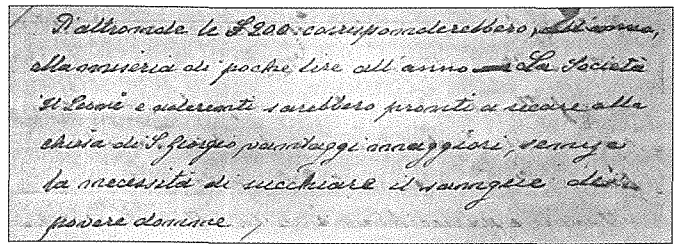 D'altronde le £200 corrisponderebbero,
alla miseria di poche lire all'anno — La Società
Il Leone e aderenti sarebbero pronti a recare alla
chiesa di S. Giorgio vantaggi maggiori, senza
la necessità di succhiare il sangue di
povere donne